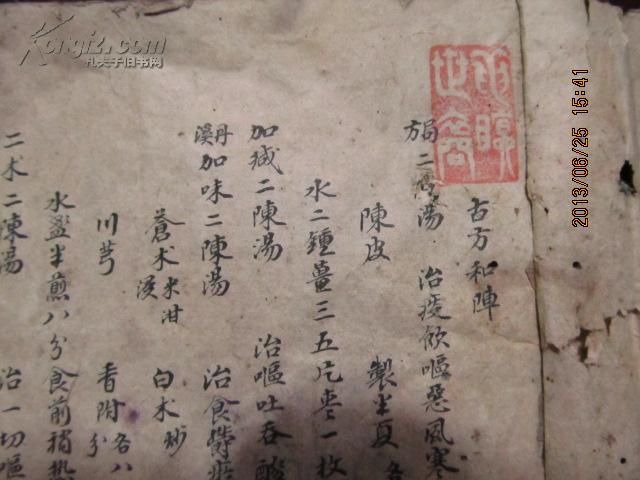 古方和陣
局方二陳湯 治痰飲嘔惡風寒
陳皮 製半夏 各
水二鍾薑三五片棗一枚
加減二陳湯 治嘔吐吞酸
丹溪加味二陳湯 治食鬱痰
蒼术 米泔浸 白术 炒
川芎 香附 各八分
水盞半煎八分食前稍热
二术二陳湯 治一切嘔
Kongfz.com
孔夫子旧书网
2013/06/25 15:41